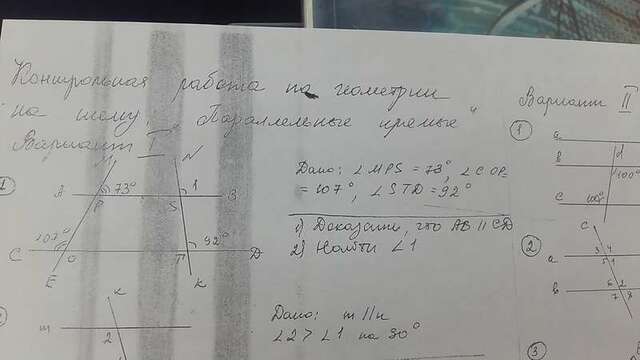 Контрольная работа по геометрии
на тему „Параллельные прямые"
Вариант I
1
M
N
A
73°
1
B
P
S
C
107°
92°
D
O
T
E
K
Дано: ∠MPS = 73°, ∠COP
= 107°, ∠STD = 92°
1) Доказать, что AB || CD
2) Найти ∠1
K
m
2
Дано: m || n
∠2 > ∠1 на 30°
Вариант II
1
a
d
b
100°
c
100°
2
c
3 4
a
5 1
6 2
b
7 8
3